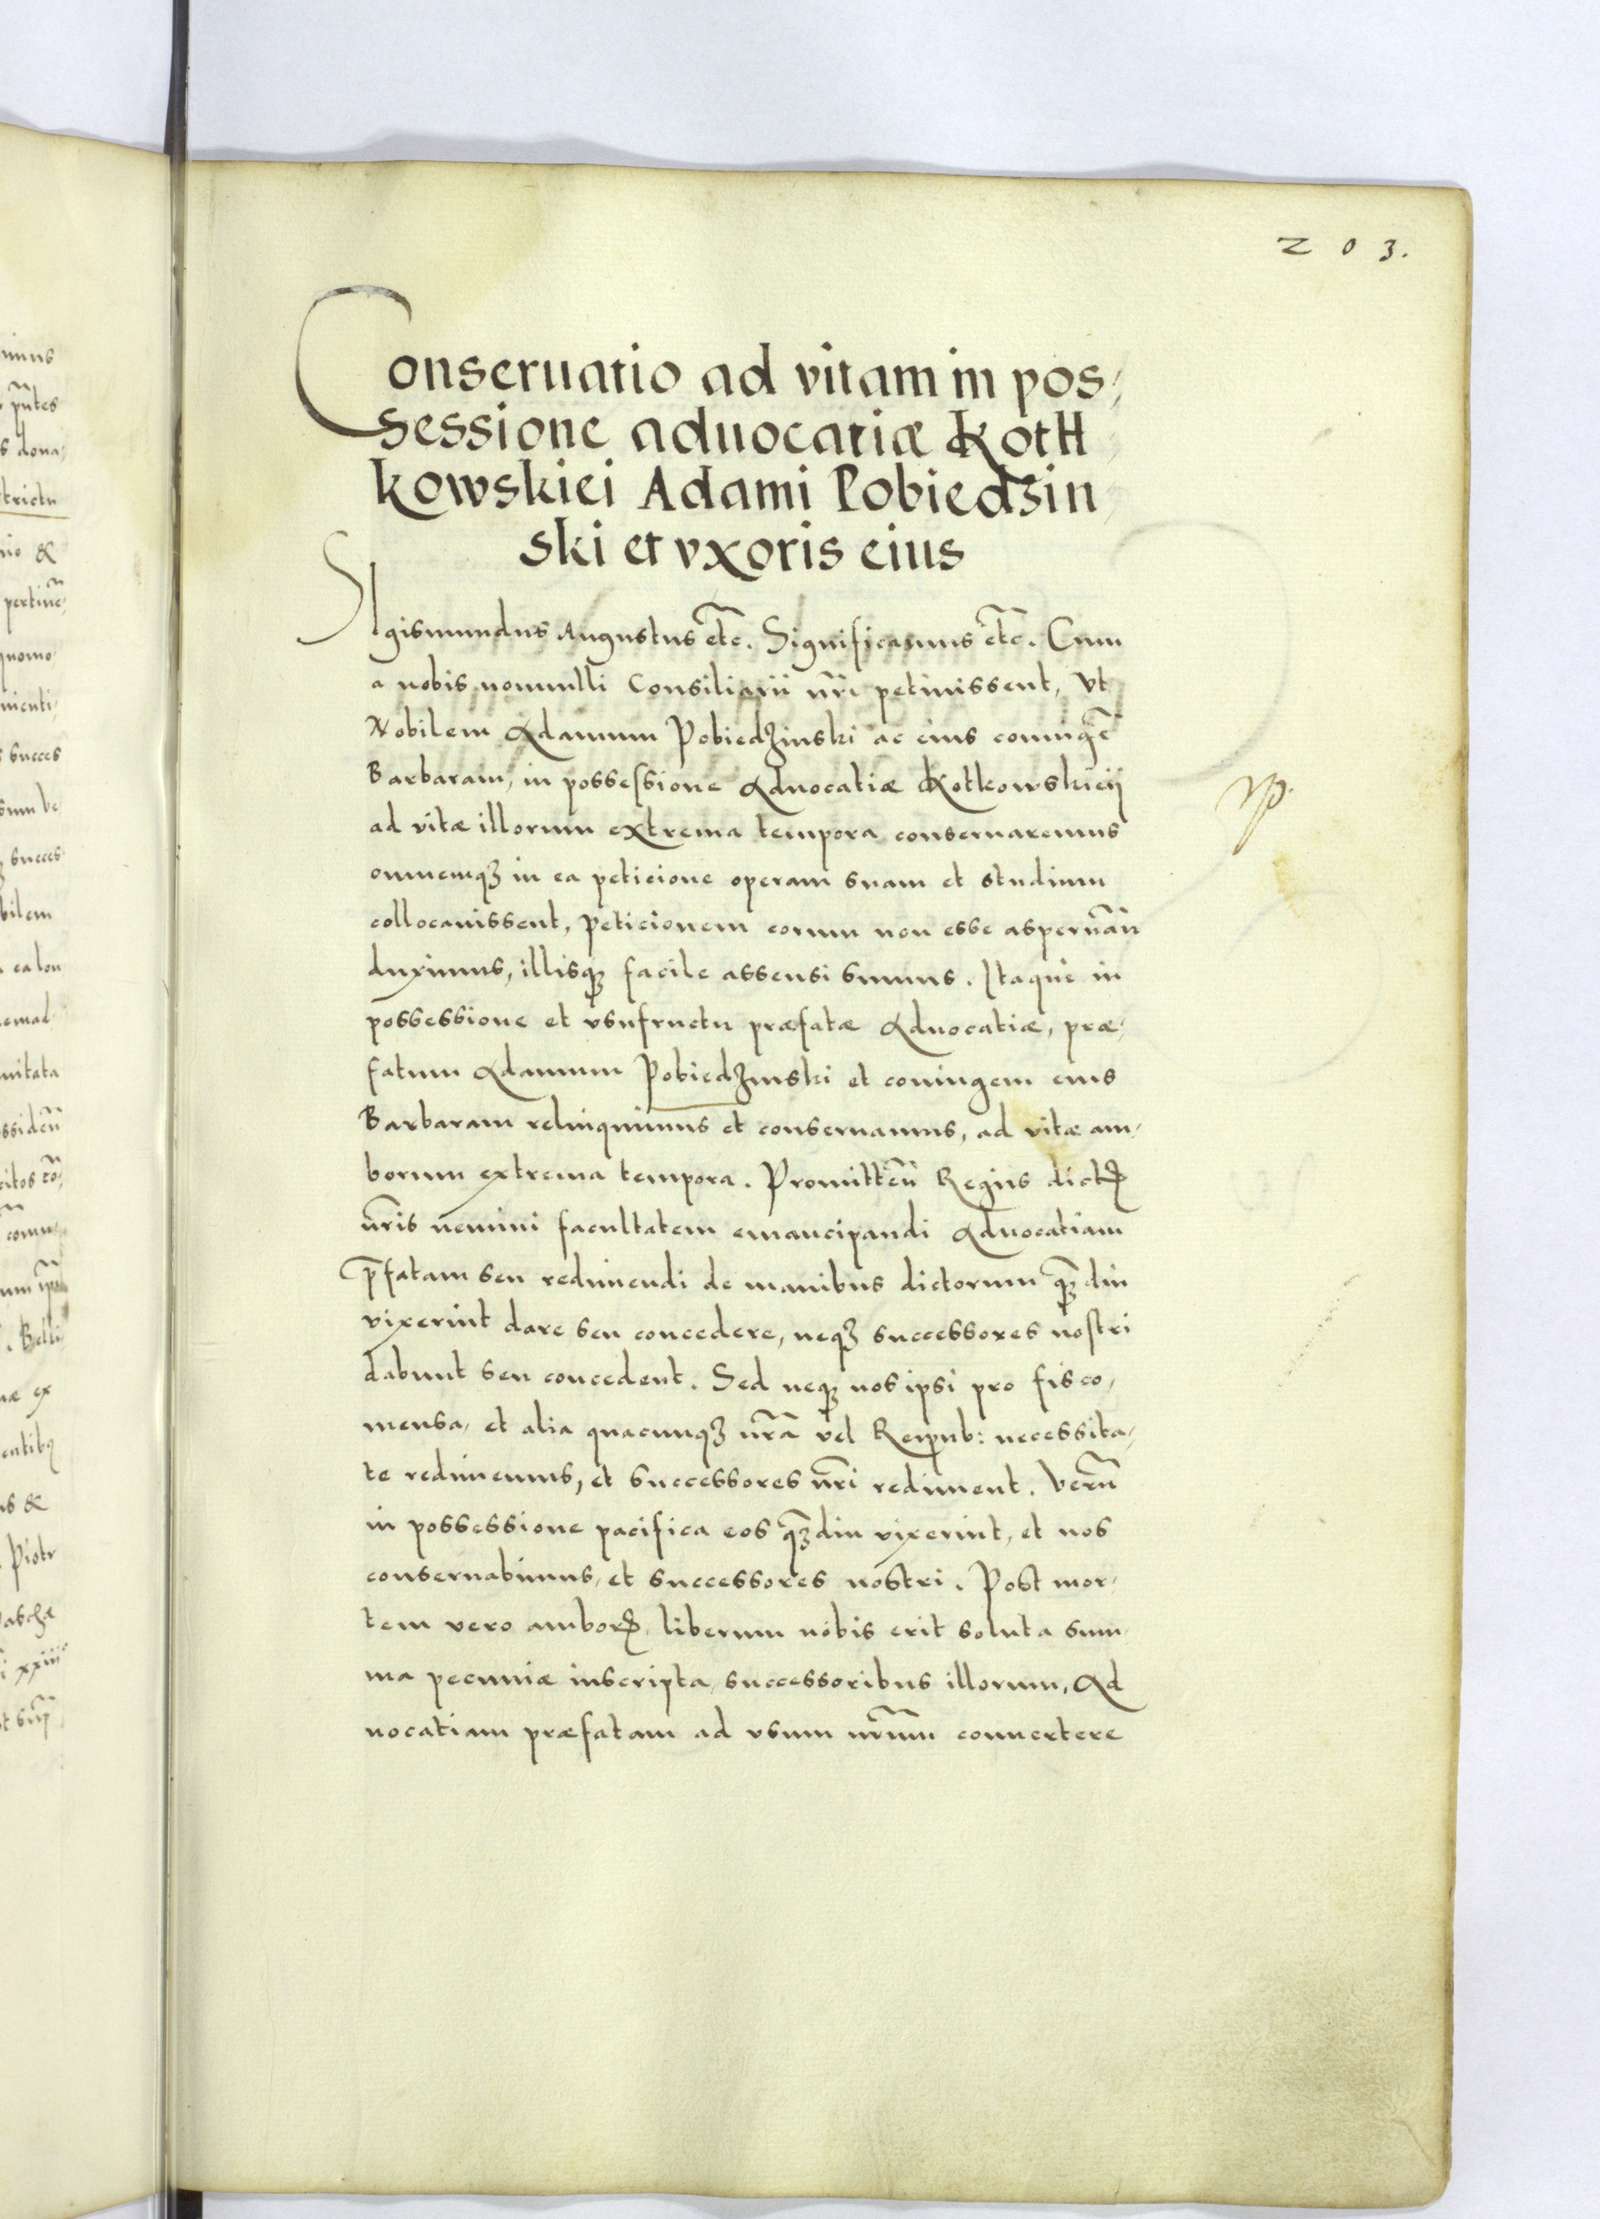 203.
Conseruatio ad vitam in pos,
sessione aduocatiæ Koth
kowskiei Adami Pobiedzin
ski et vxoris eius
SIgismundus Augustus etc̃. Significamus etc̃. Cum
a nobis nonnulli Consiliarii nr̃i petiuissent, Vt
Nobilem Adamum Pobiedzinski ac eius coniugẽ
Barbaram, in possessione Aduocatiæ Kotkowskieij
ad vitæ illorum extrema tempora conseruaremus
omnemqꝫ in ea peticione operam suam et studium
collocauissent, Peticionem eorum non esse aspernãn
duximus, illisqꝫ facile assensi sumus. Itaque in
possessione et vsufructu præfatæ Aduocatiæ, præ,
fatum Adamum Pobiedzinski et coniugem eius
Barbaram relinquimus et conseruamus, ad vitæ am,
borum extrema tempora. Promitteñ Regiis dictꝭ
nr̃is nemini facultatem emancipandi Aduocatiam
p̃fatam seu redimendi de manibus dictorum qꝫdiu
vixerint dare seu concedere, neqꝫ successores nostri
dabunt seu concedent. Sed neqꝫ nos ipsi pro fisco,
mensa, et alia quacunqꝫ nr̃a vel Reipub: necessita,
te redimemus, et successores nr̃i rediment. Verũ
in possessione pacifica eos qꝫdiu vixerint, et nos
conseruabimus, et successores nostri. Post mor,
tem vero amborꝝ, liberum nobis erit soluta sum,
ma pecuniæ inscripta successoribus illorum, Ad
uocatiam præfatam ad vsum nr̃um conuertere